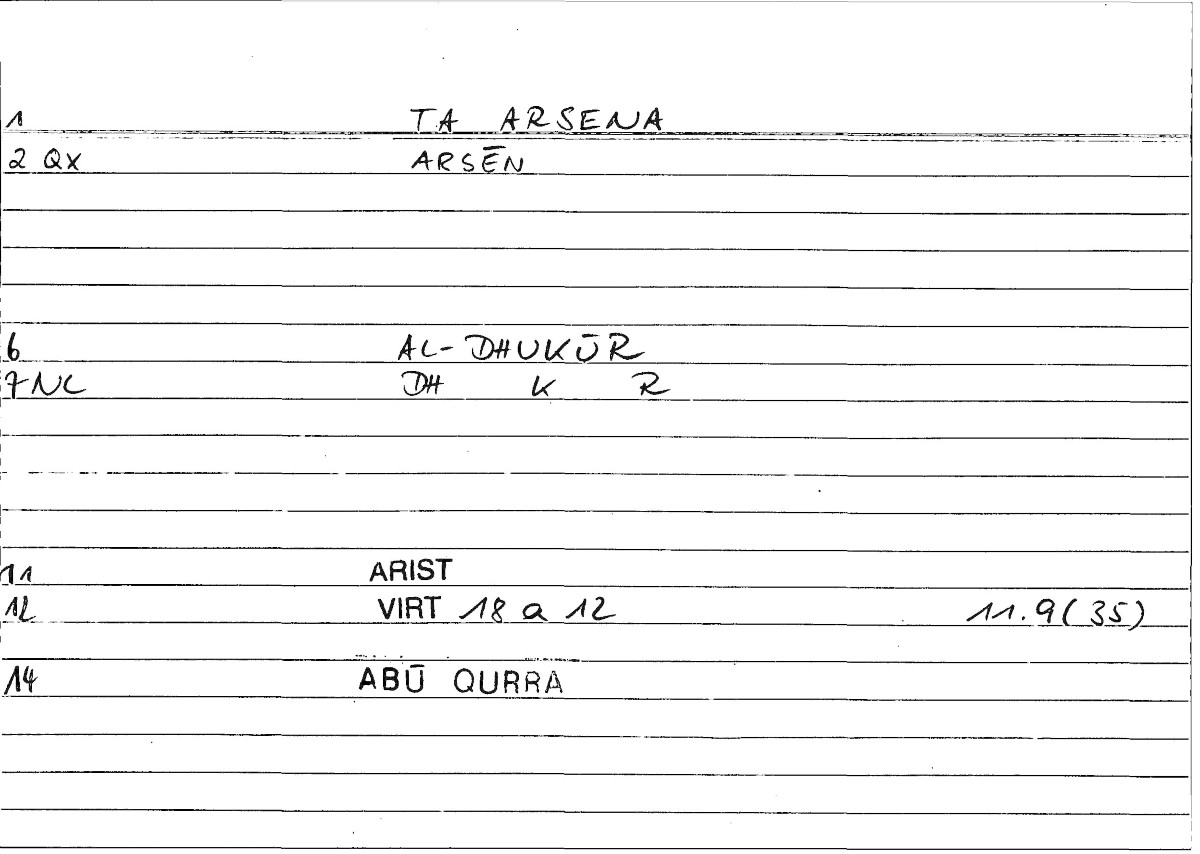 1 TA ARSENA
2 QX ARSĒN
6 AL-DHUKŪR
7NL DH K R
11 ARIST
12 VIRT 18 a 12 11.9(35)
14 ABŪ QURRA